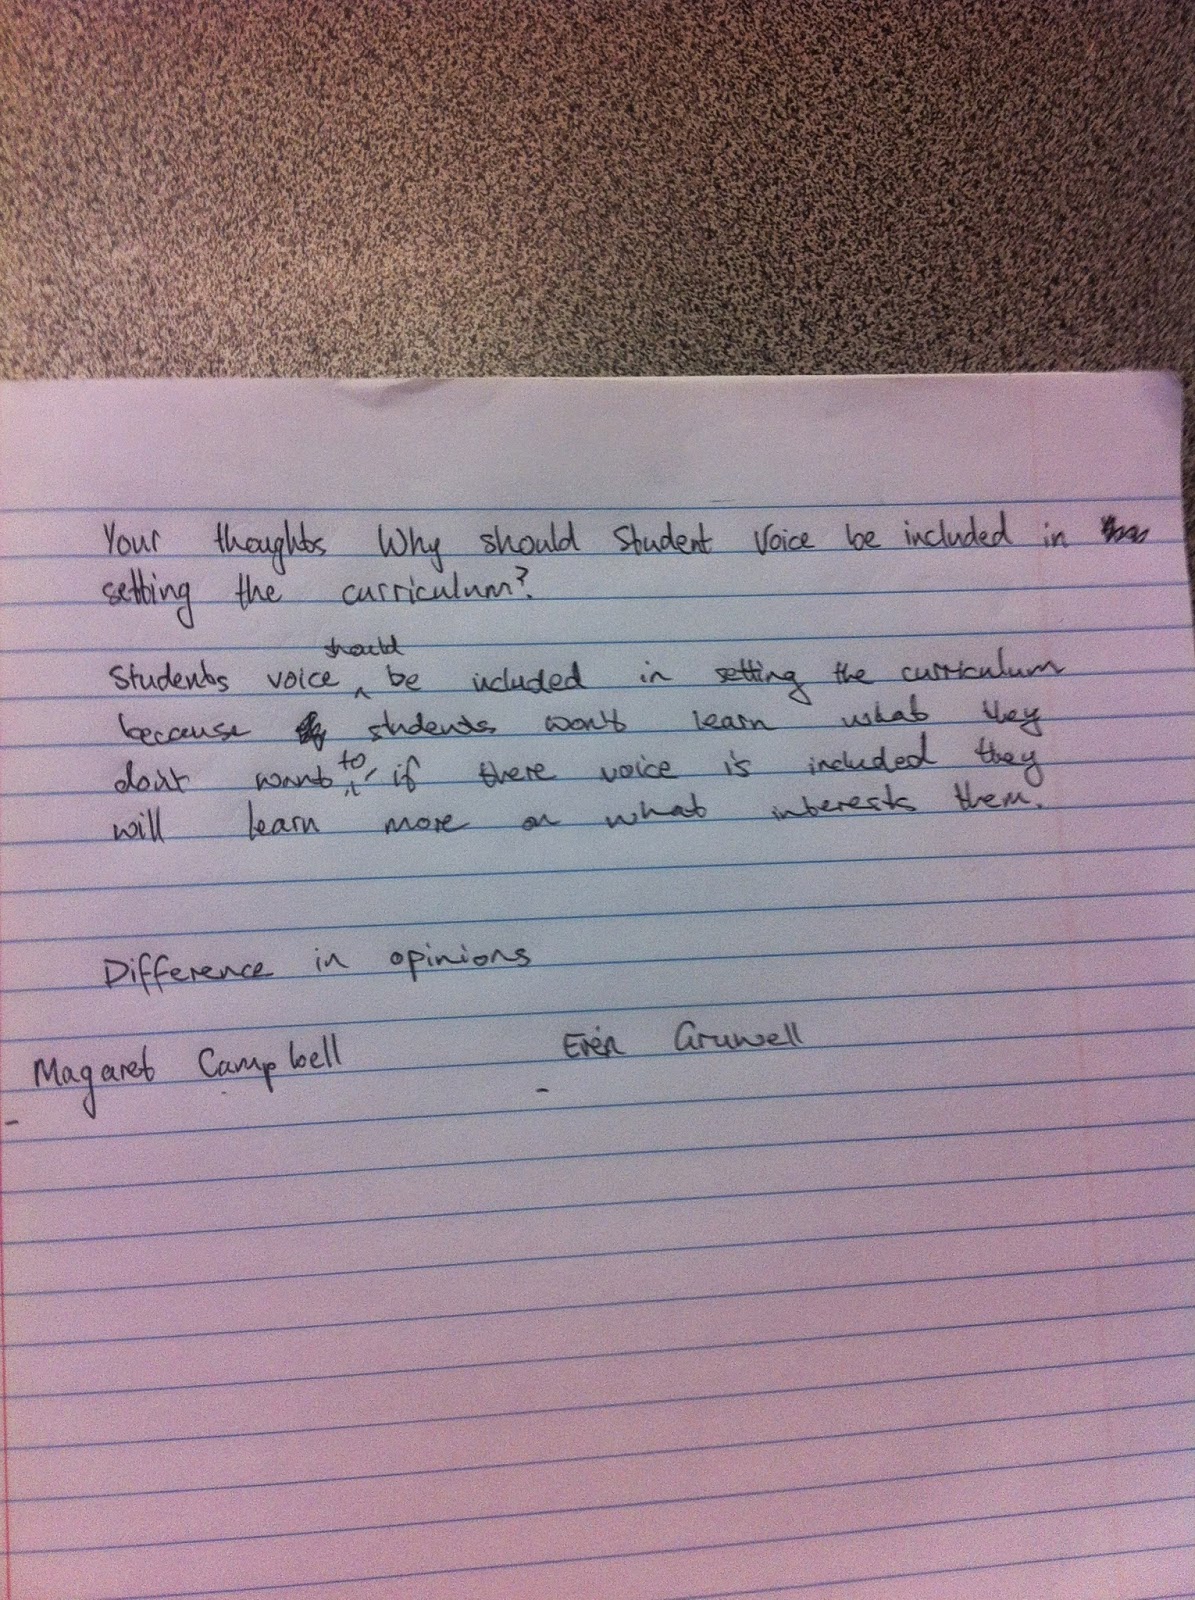 Your thoughts Why should Student Voice be included in
setting the curriculum?
should
Students voice ^ be included in setting the curriculum
because students won't learn what they
to
don't want ^, if there voice is included they
will learn more on what interests them.
Difference in opinions
Magaret Campbell Erin Gruwell
- -